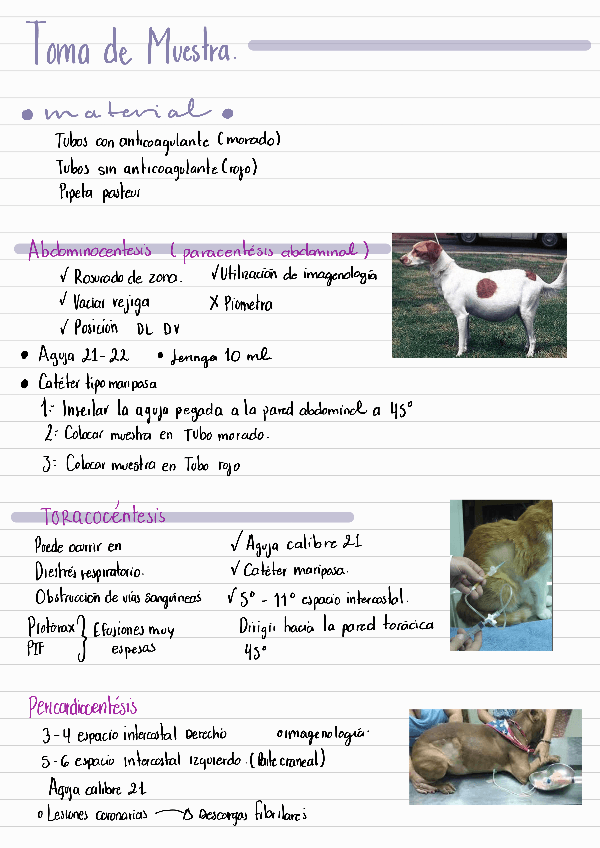 Toma de Muestra.
• material •
Tubos con anticoagulante (morado)
Tubos sin anticoagulante (rojo)
Pipeta pasteur
Abdominocentesis (paracentésis abdominal)
✓ Rasurado de zona. ✓ Utilización de imagenología
✓ Vaciar vejiga X Piometra
✓ Posición DL DV
• Aguja 21-22 • Jeringa 10 ml
• Catéter tipo mariposa
1: Insertar la aguja pegada a la pared abdominal a 45°
2: Colocar muestra en Tubo morado.
3: Colocar muestra en Tubo rojo
Toracocéntesis
Puede ocurrir en ✓ Aguja calibre 21
Diestrés respiratorio. ✓ Catéter mariposa.
Obstrucción de vías sanguíneas ✓ 5° - 11° espacio intercostal.
Piotórax } Efusiones muy Dirigir hacia la pared torácica
PIF espesas 45°
Pericardiocentésis
3-4 espacio intercostal Derecho o imagenología.
5-6 espacio intercostal Izquierdo. (Borde craneal)
Aguja calibre 21
o Lesiones coronarias → Descargas fibrilares